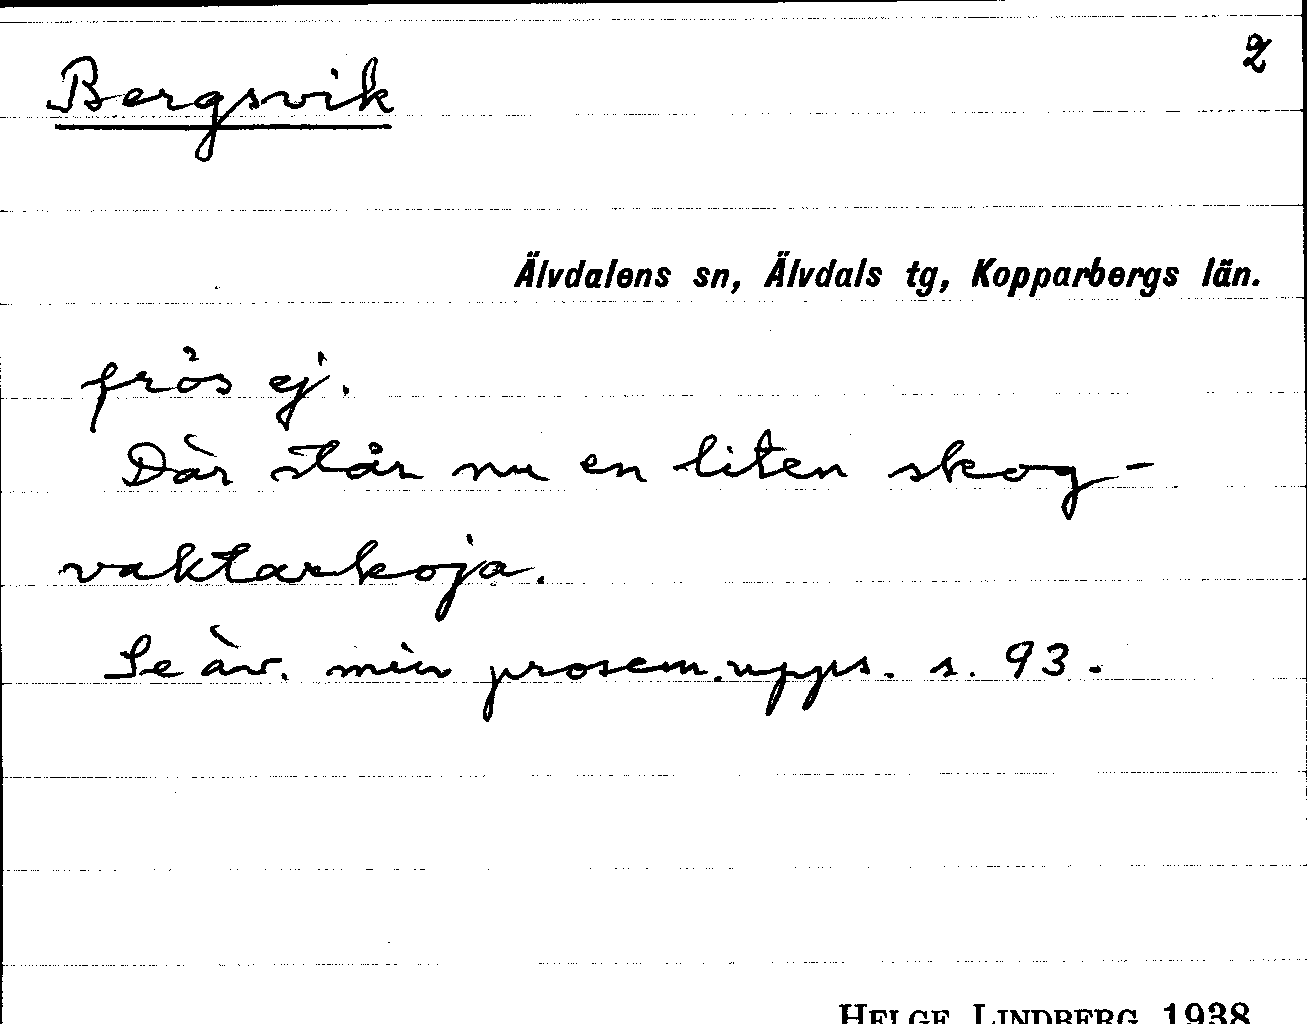 2
Bergsvik
Älvdalens sn, Älvdals tg, Kopparbergs län.
frös ej.
Där står nu en liten skog-
vaktarkoja.
Se äv. min prosem.upps. s. 93.
HELGE LINDBERG 1938